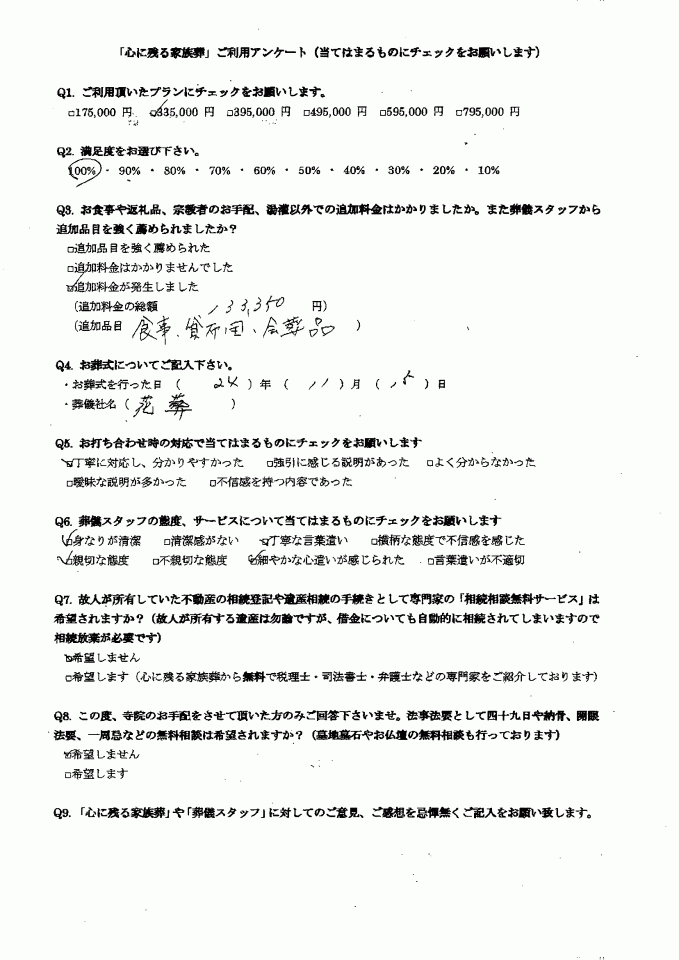 「心に残る家族葬」ご利用アンケート（当てはまるものにチェックをお願いします）
Q1. ご利用頂いたプランにチェックをお願いします。
□175,000 円 ☑335,000 円 □395,000 円 □495,000 円 □595,000 円 □795,000 円
Q2. 満足度をお選び下さい。
100% ・ 90% ・ 80% ・ 70% ・ 60% ・ 50% ・ 40% ・ 30% ・ 20% ・ 10%
Q3. お食事や返礼品、宗教者のお手配、湯灌以外での追加料金はかかりましたか。また葬儀スタッフから
追加品目を強く薦められましたか？
□追加品目を強く薦められた
□追加料金はかかりませんでした
☑追加料金が発生しました
（追加料金の総額 133,350 円）
（追加品目 食事、貸布団、会葬品 ）
Q4. お葬式についてご記入下さい。
・お葬式を行った日 （ 24 ）年（ 11 ）月（ 15 ）日
・葬儀社名（ 花葬 ）
Q5. お打ち合わせ時の対応で当てはまるものにチェックをお願いします
☑丁寧に対応し、分かりやすかった □強引に感じる説明があった □よく分からなかった
□曖昧な説明が多かった □不信感を持つ内容であった
Q6. 葬儀スタッフの態度、サービスについて当てはまるものにチェックをお願いします
☑身なりが清潔 □清潔感がない ☑丁寧な言葉遣い □横柄な態度で不信感を感じた
☑親切な態度 □不親切な態度 ☑細やかな心遣いが感じられた □言葉遣いが不適切
Q7. 故人が所有していた不動産の相続登記や遺産相続の手続きとして専門家の「相続相談無料サービス」は
希望されますか？（故人が所有する遺産は勿論ですが、借金についても自動的に相続されてしまいますので
相続放棄が必要です）
☑希望しません
□希望します（心に残る家族葬から無料で税理士・司法書士・弁護士などの専門家をご紹介しております）
Q8. この度、寺院のお手配をさせて頂いた方のみご回答下さいませ。法事法要として四十九日や納骨、開眼
法要、一周忌などの無料相談は希望されますか？（墓地墓石やお仏壇の無料相談も行っております）
☑希望しません
□希望します
Q9. 「心に残る家族葬」や「葬儀スタッフ」に対してのご意見、ご感想を忌憚無くご記入をお願い致します。